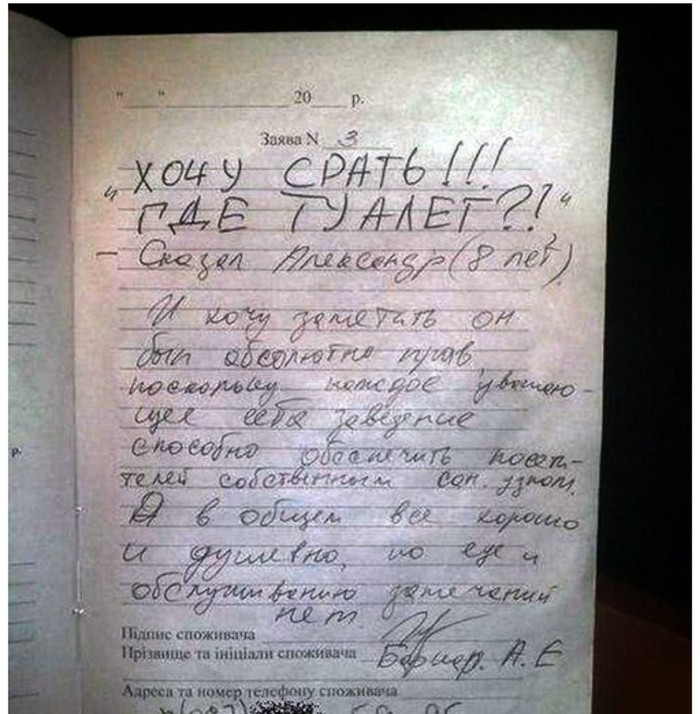 "___" ________ 20___ р.
Заява N 3
"ХОЧУ СРАТЬ!!!
ГДЕ ТУАЛЕТ?!"
– Сказал Александр (8 лет).
И хочу заметить он
был абсолютно прав,
поскольку каждое уважаю-
щее себя заведение
способно обеспечить посети-
телей собственным сан. узлом.
А в общем все хорошо
и душевно, по еде и
обслуживанию замечаний
нет
Підпис споживача
Прізвище та ініціали споживача А. Е
Адреса та номер телефону споживача
р.